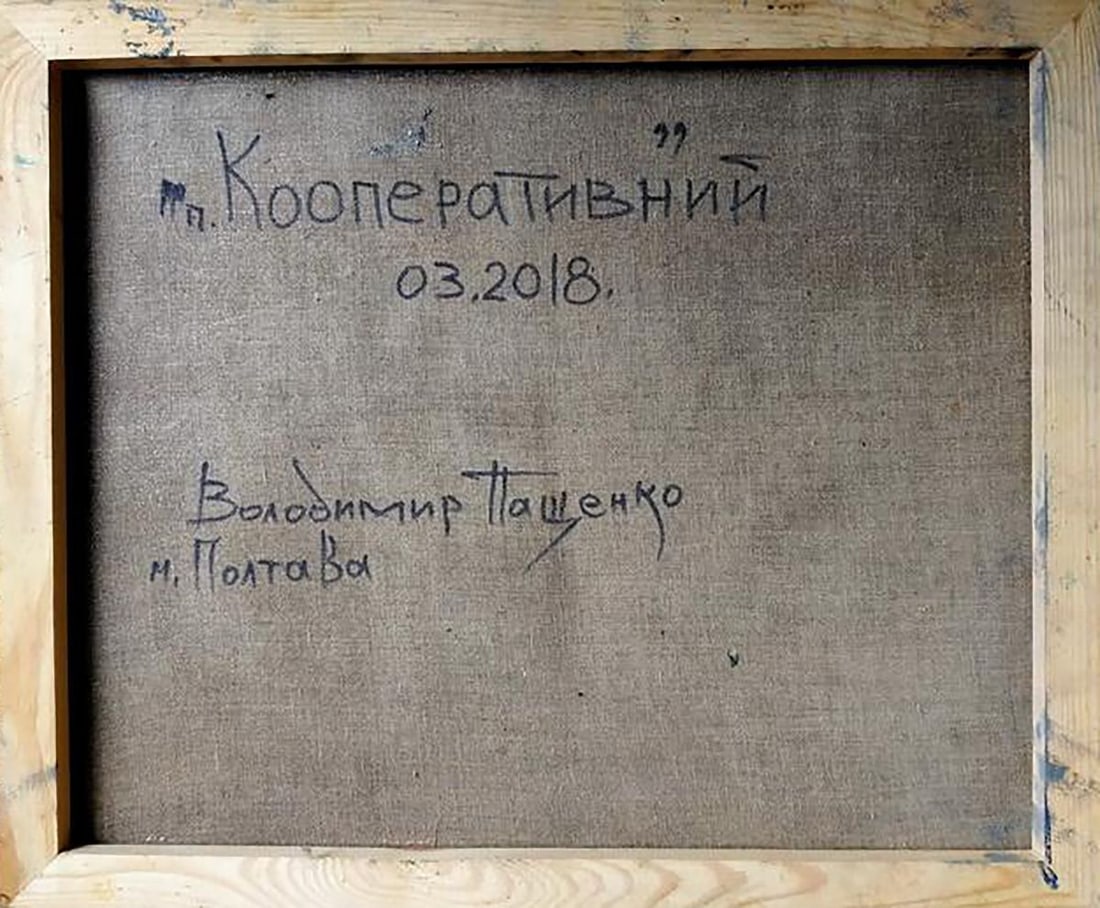 п. Кооперативний”
03.2018.
Володимир Пащенко
м. Полтава